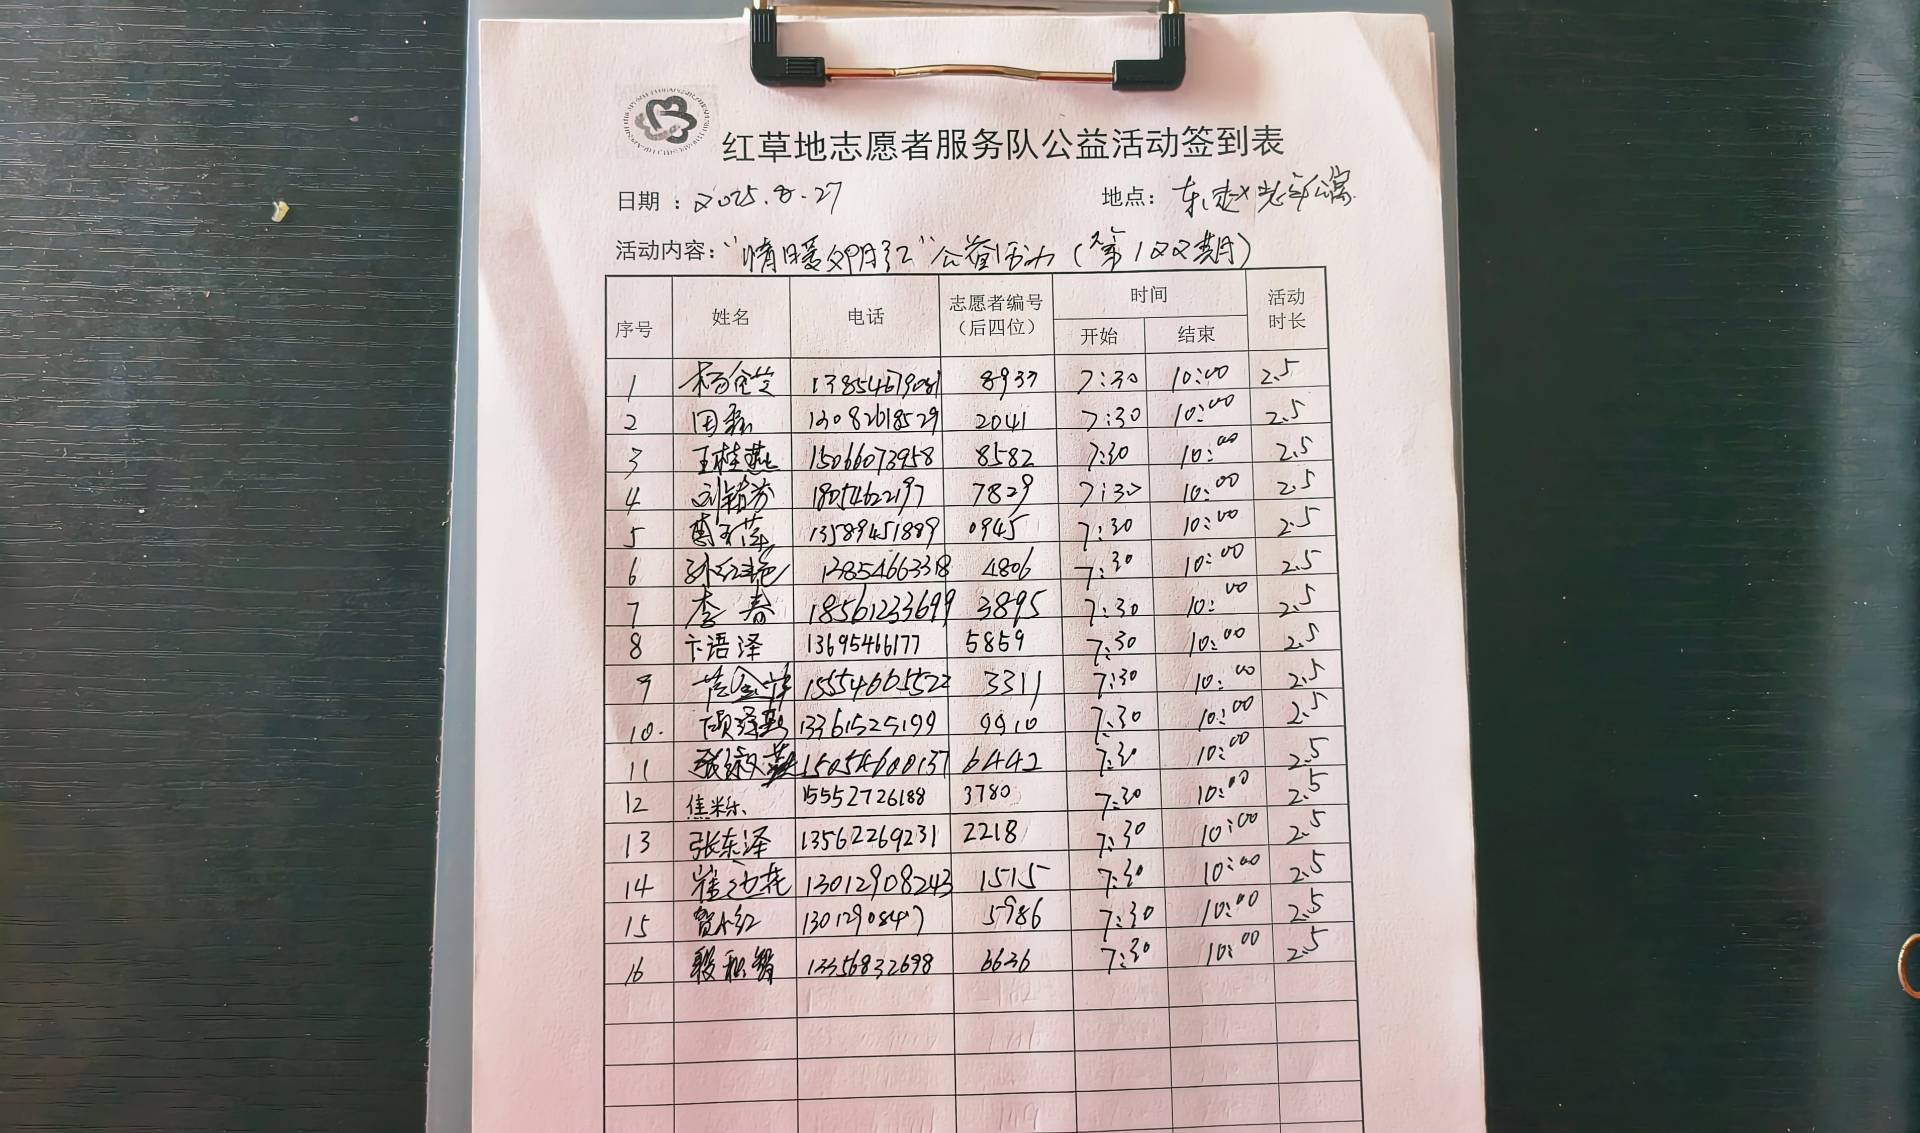 红草地志愿者服务队公益活动签到表
日期：2025.8.27 地点：东赵老年公寓
活动内容："情暖夕阳红"公益活动（第122期）
序号 姓名 电话 志愿者编号（后四位） 时间 活动时长
开始 结束
1 杨金芝 13854679081 8937 7:30 10:00 2.5
2 田磊 13082618529 2041 7:30 10:00 2.5
3 王桂燕 15066073958 8582 7:30 10:00 2.5
4 18054622197 7829 7:30 10:00 2.5
5 13589451889 0945 7:30 10:00 2.5
6 孙红艳 13854663318 4806 7:30 10:00 2.5
7 李春 18561233699 3895 7:30 10:00 2.5
8 卞语泽 13695466177 5859 7:30 10:00 2.5
9 15554605522 3311 7:30 10:00 2.5
10. 13361525199 9910 7:30 10:00 2.5
11 15054600137 6442 7:30 10:00 2.5
12 焦米乐 15552726188 3780 7:30 10:00 2.5
13 张东泽 13562269231 2218 7:30 10:00 2.5
14 13012908243 1515 7:30 10:00 2.5
15 贺小红 1301290847 5986 7:30 10:00 2.5
16 13356832698 6636 7:30 10:00 2.5